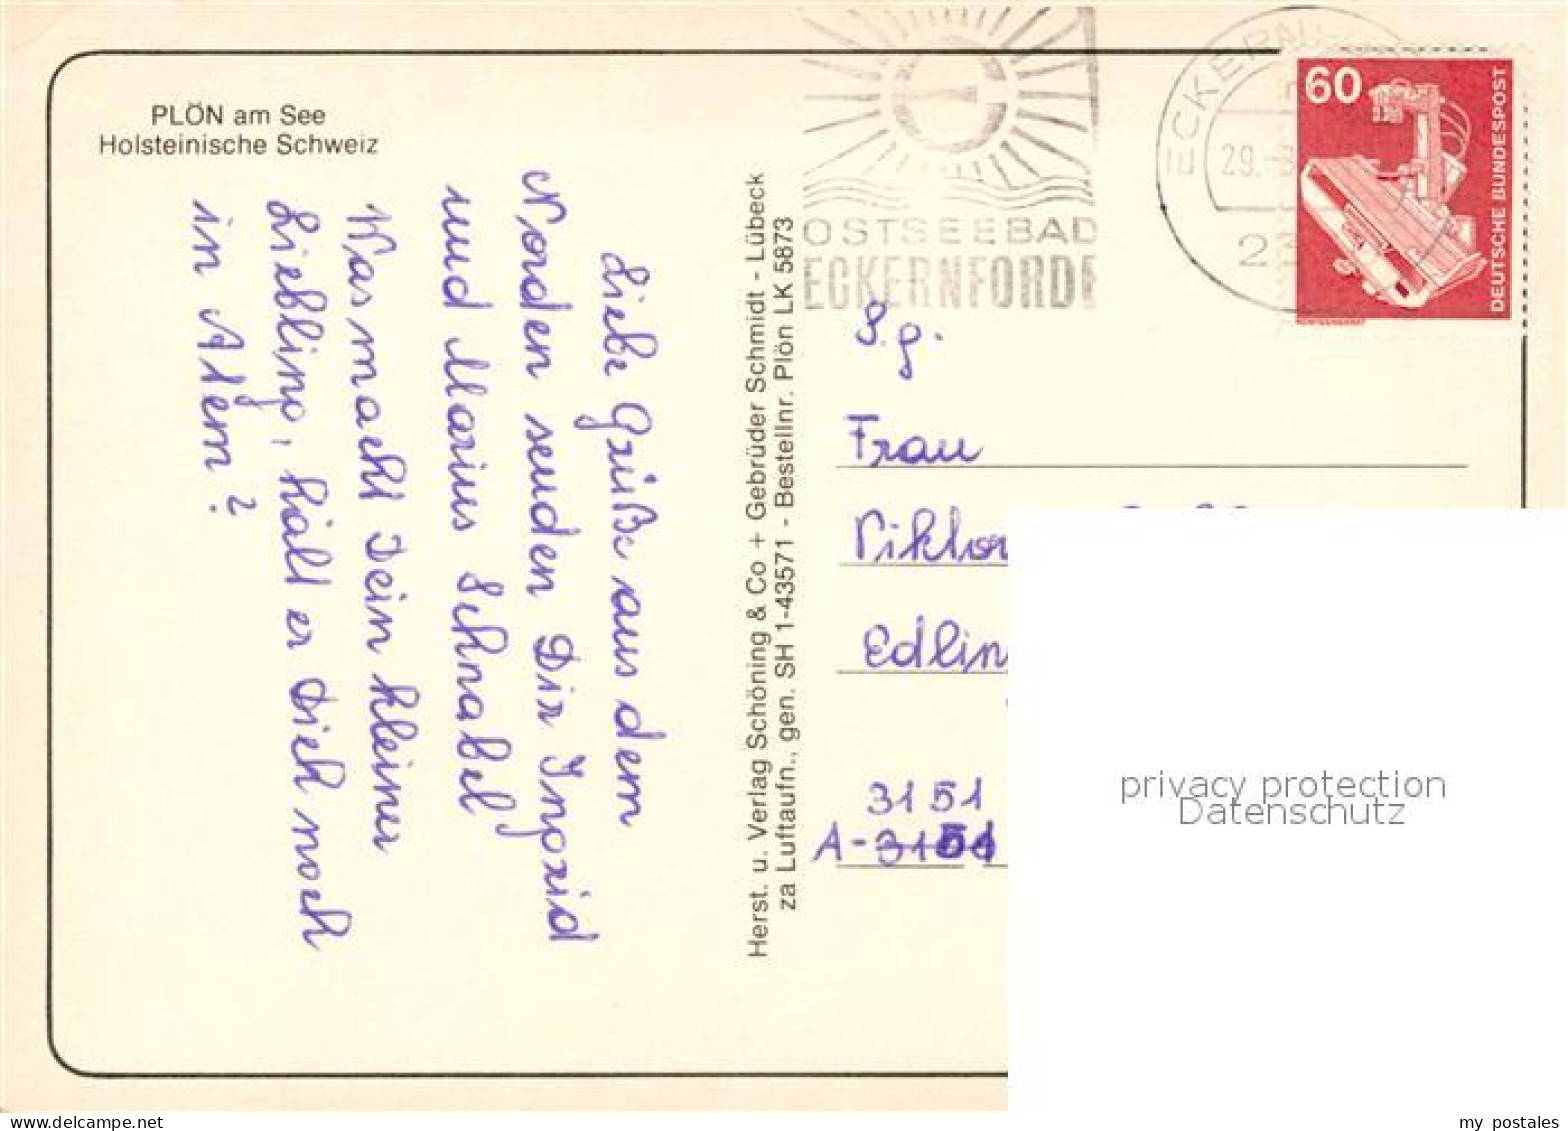 PLÖN am See
Holsteinische Schweiz
Liebe Grüße aus dem
Norden senden Dir Ingrid
und Marius Schnabel
Was macht Dein kleiner
Liebling, hält er Dich noch
in Atem?
Herst. u. Verlag Schöning & Co + Gebrüder Schmidt - Lübeck
za Luftaufn., gen. SH 1-43571 - Bestellnr. Plön LK 5873
OSTSEEBAD
ECKERNFÖRDE
29.
23
60
DEUTSCHE BUNDESPOST
S.g.
Frau
Viktor
Edlin
3151
A-
privacy protection
Datenschutz
my postales